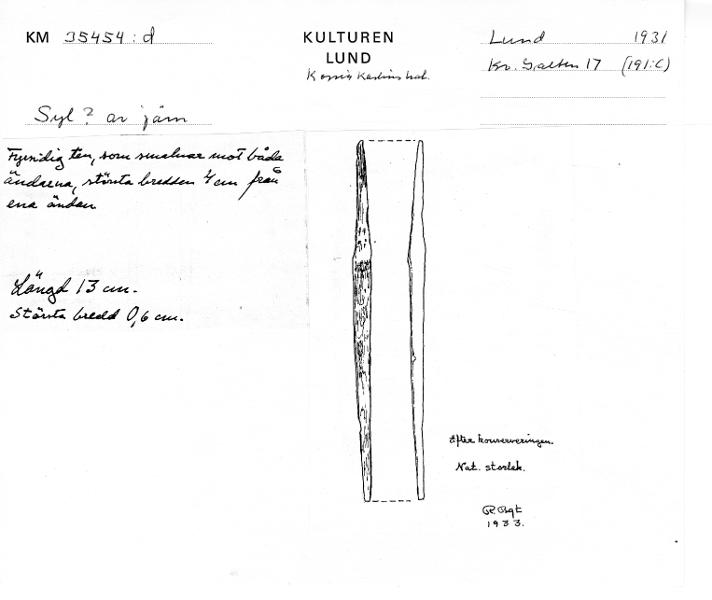 KM 35454:d
KULTUREN
LUND
Lund 1931
Kv. Galten 17 (191:C)
Syl? av järn
Fyrsidig ten, som smalnar mot båda
ändarna, största bredden 4 cm från
ena ändan
Längd 13 cm.
Största bredd 0,6 cm.
Efter konserveringen.
Nat. storlek.
1933.